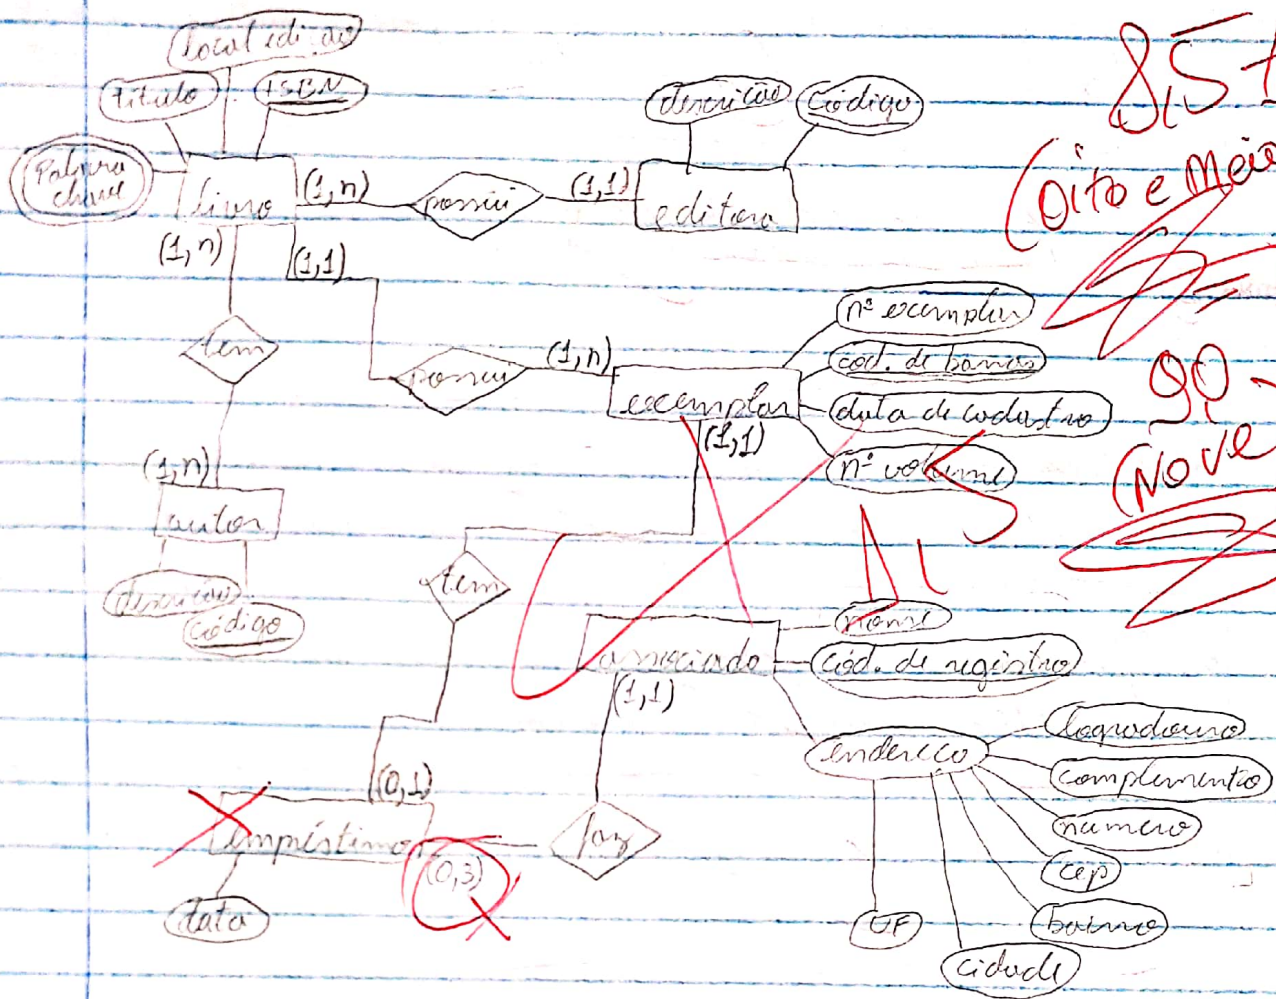 local edição
título
ISBN
Palavra
chave
livro
(1,n)
possui
(1,1)
editora
descrição
código
8,5
(Oito e Meio
(1,n)
(1,1)
tem
possui
(1,n)
exemplar
nº exemplar
cód. de barras
data de cadastro
nº volume
(1,1)
9,0
(Nove
(1,n)
autor
descrição
código
tem
associado
nome
cód. de registro
(1,1)
endereço
logradouro
complemento
numero
cep
bairro
cidade
UF
(0,1)
empréstimo
(0,3)
faz
data